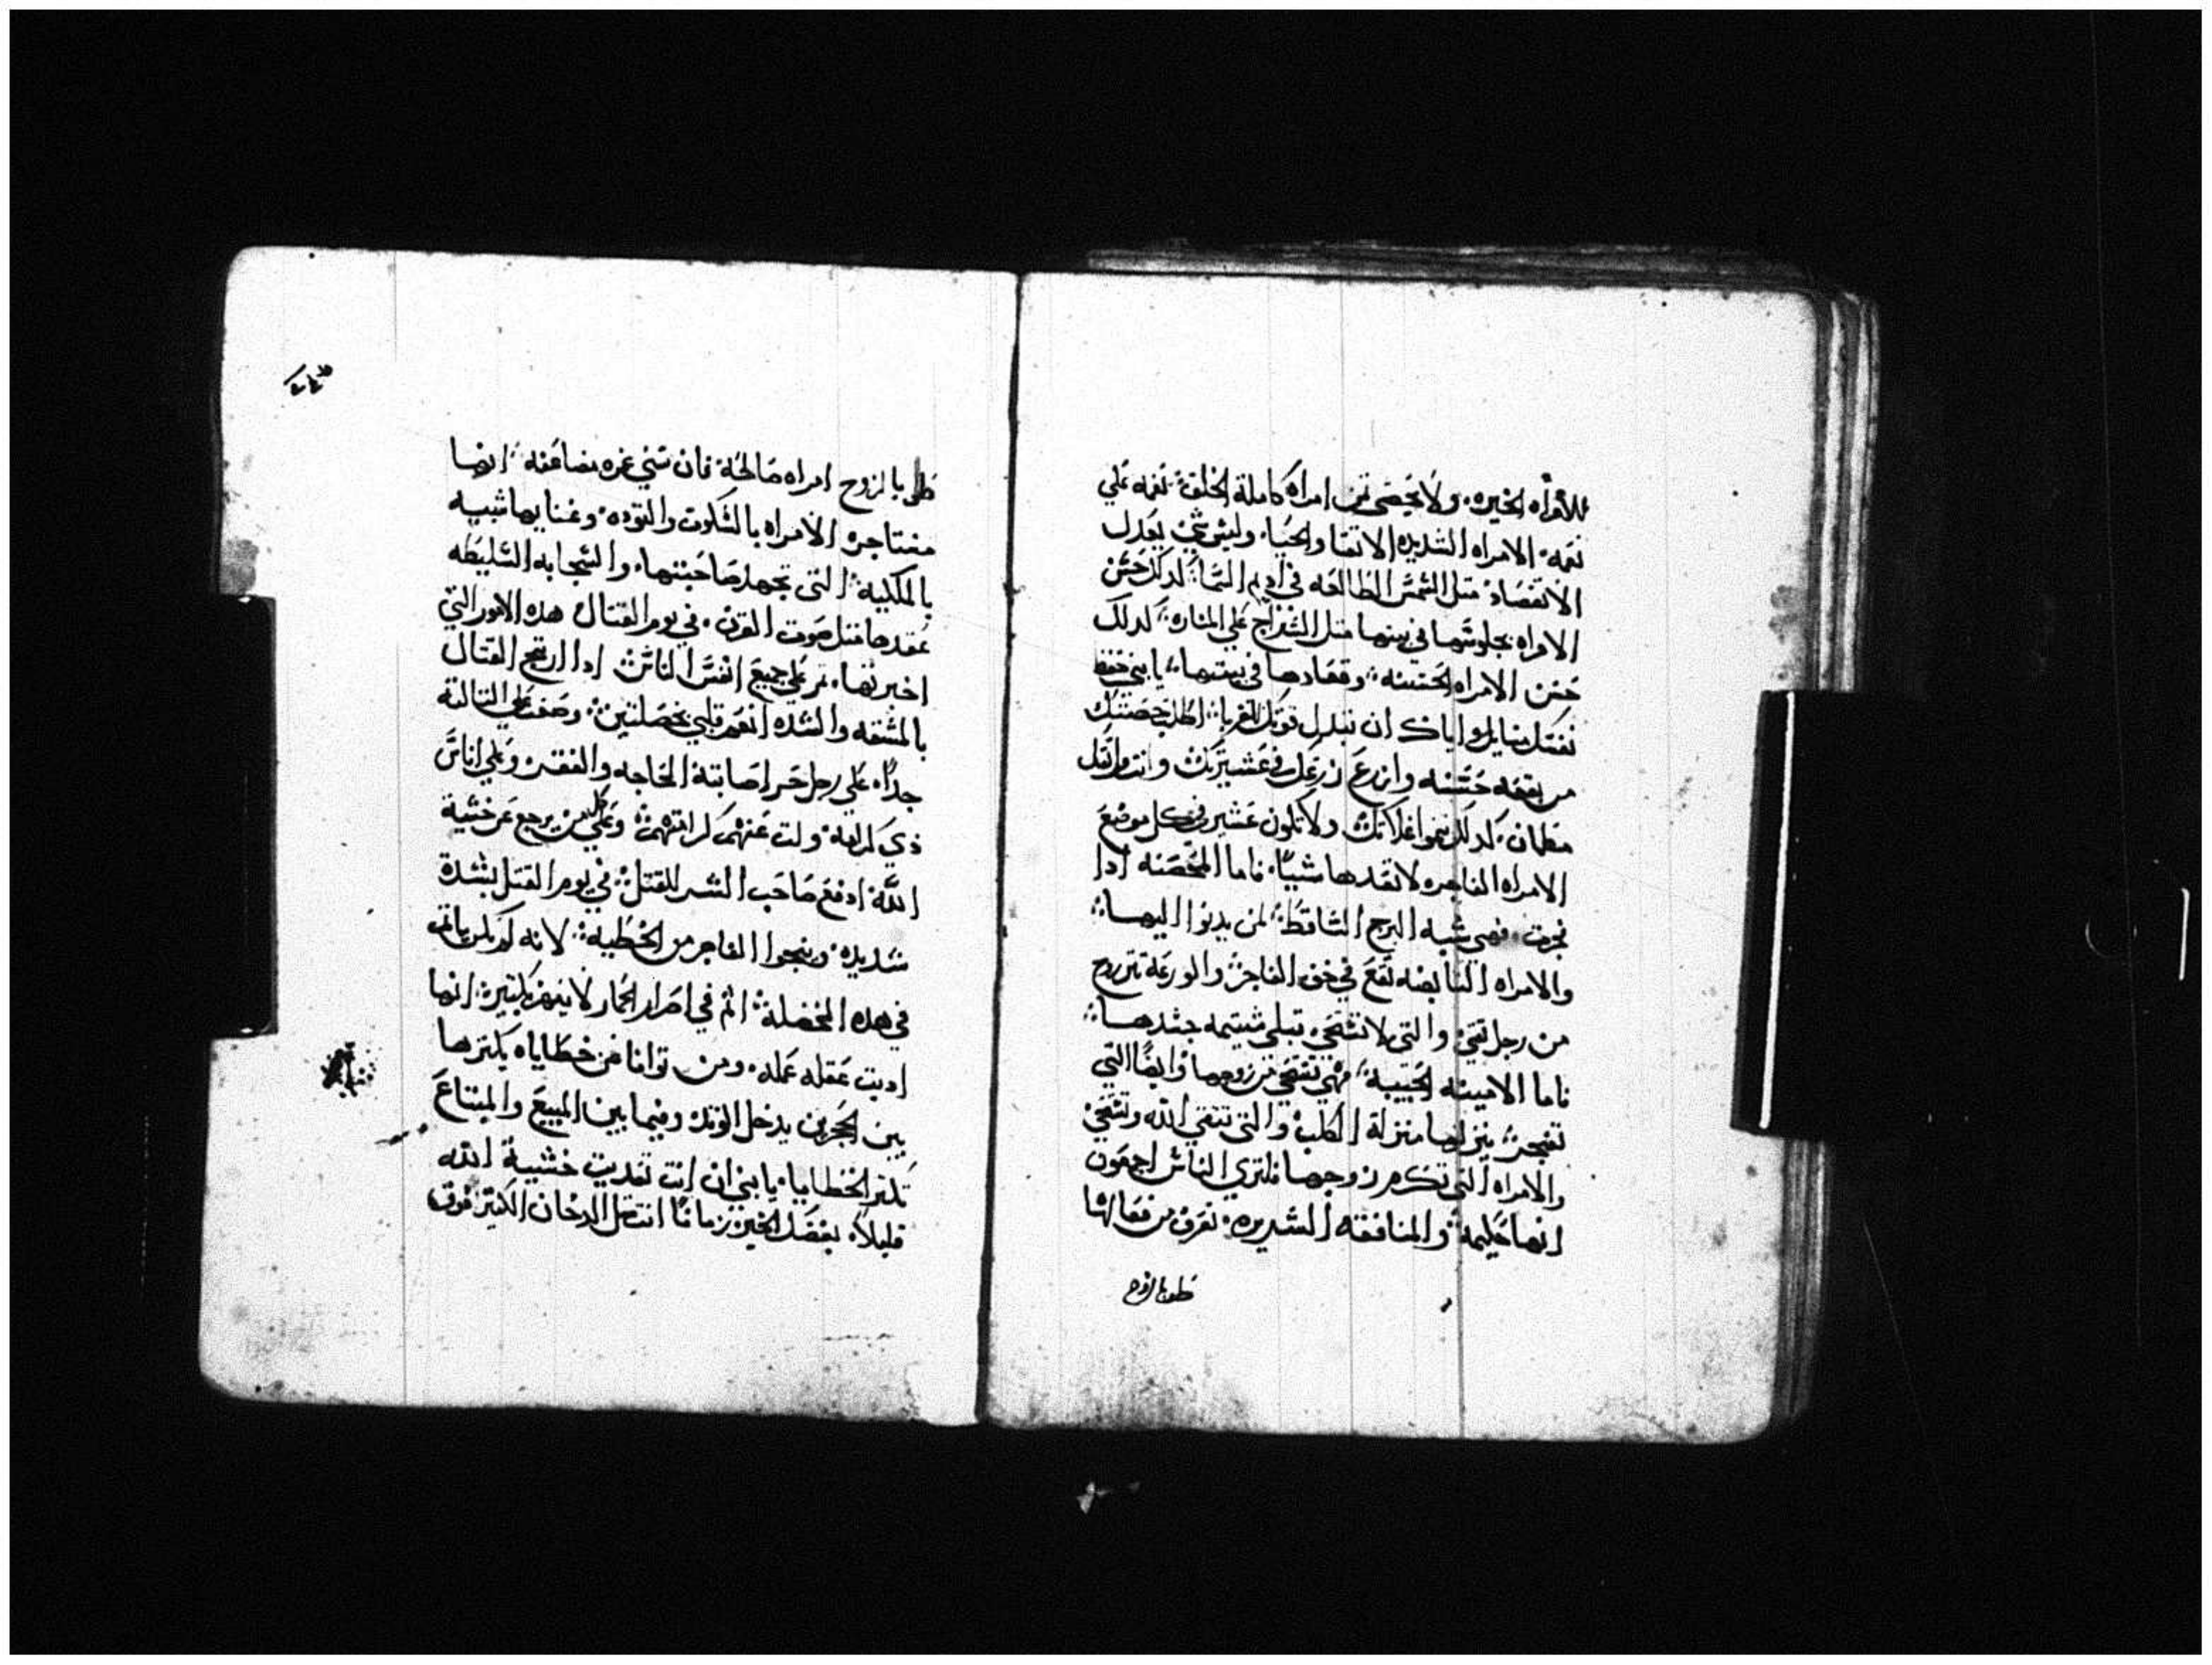 للامراه الخيره. ولا يحصى تمن امراه كاملة الخلق نعمه علي
نعمه. الامراه الشديده الاتقا والحيا. وليس شي يعدل
الاتقصاد متل الشمس الطالعه في اديم السما كدلك حسن
الامراه بجلوسها في بيتها متل السراج علي المناره كدلك
حسن الامراه الحسنه وقعادها في بيتها يا بني حفظ
نفسك واياك ان تبدل قوتك للغربا اطلب حصتك
من بقعه حسنه وازرع زرعك في عشيرتك وانت واتقل
مطمان. كدلك ينموا غلاتك ولا تكون عشير في كل موضع
الامراه الفاجره لا تعدها شيًا. فاما المحصنه ادا
فجرت. فهي شبه البرج الساقط لمن يدنوا اليها
والامراه الناقصه تقع في حق الفاجر والورعه تتزوج
من رجل تقي والتي لا تستحي تبلي شتيمه جسدها
فاما الامينه الحبيبة فهي تستحي من زوجها وايضًا التي
تفجر ينزلها منزلة الكلب والتي تتقي الله وتستحي
والامراه التي تكرم زوجها فلتري الناس اجمعون
انها حكيمة والمنافقه الشديده. تعرف من فعالها
طوبا لزوج
طوبا لزوج امراه صالحة فان سني عمره مضاعفه انها
الامراه بالسكوت والتوده وغنايها شبيه
التي تجهد صاحبتها. والسليطه
عقدها متل صوت القرن. في يوم القتال هده الامور التي
اخبرتها. تمر علي جميع انفس الناس ادا ارتج القتال
بالمشقه والشده انعم قلبي بخصلتين وصعب علي التالتة
جدًا. علي رجل حر اصابته الحاجه والفقر وعلي اناس
ذي كرامة ولت عنهم كرامتهم وعلي كل من يرجع عن خشية
الله ادفع صاحب الشر للقتل في يوم القتل بشدة
شديده وينجوا الفاجر من الخطية لانه لم ياتم
في هده الخصلة
اديت عقله عمله. ومن توانا عن خطاياه يكترها
بين الحجرين يدخل الوتد وفيما بين المبيع والمبتاع
تكتر الخطايا. يا بني ان انت تعديت خشية الله
قليلاً. بعضك الخير زمانًا انت متل الدخان الكتير فوق